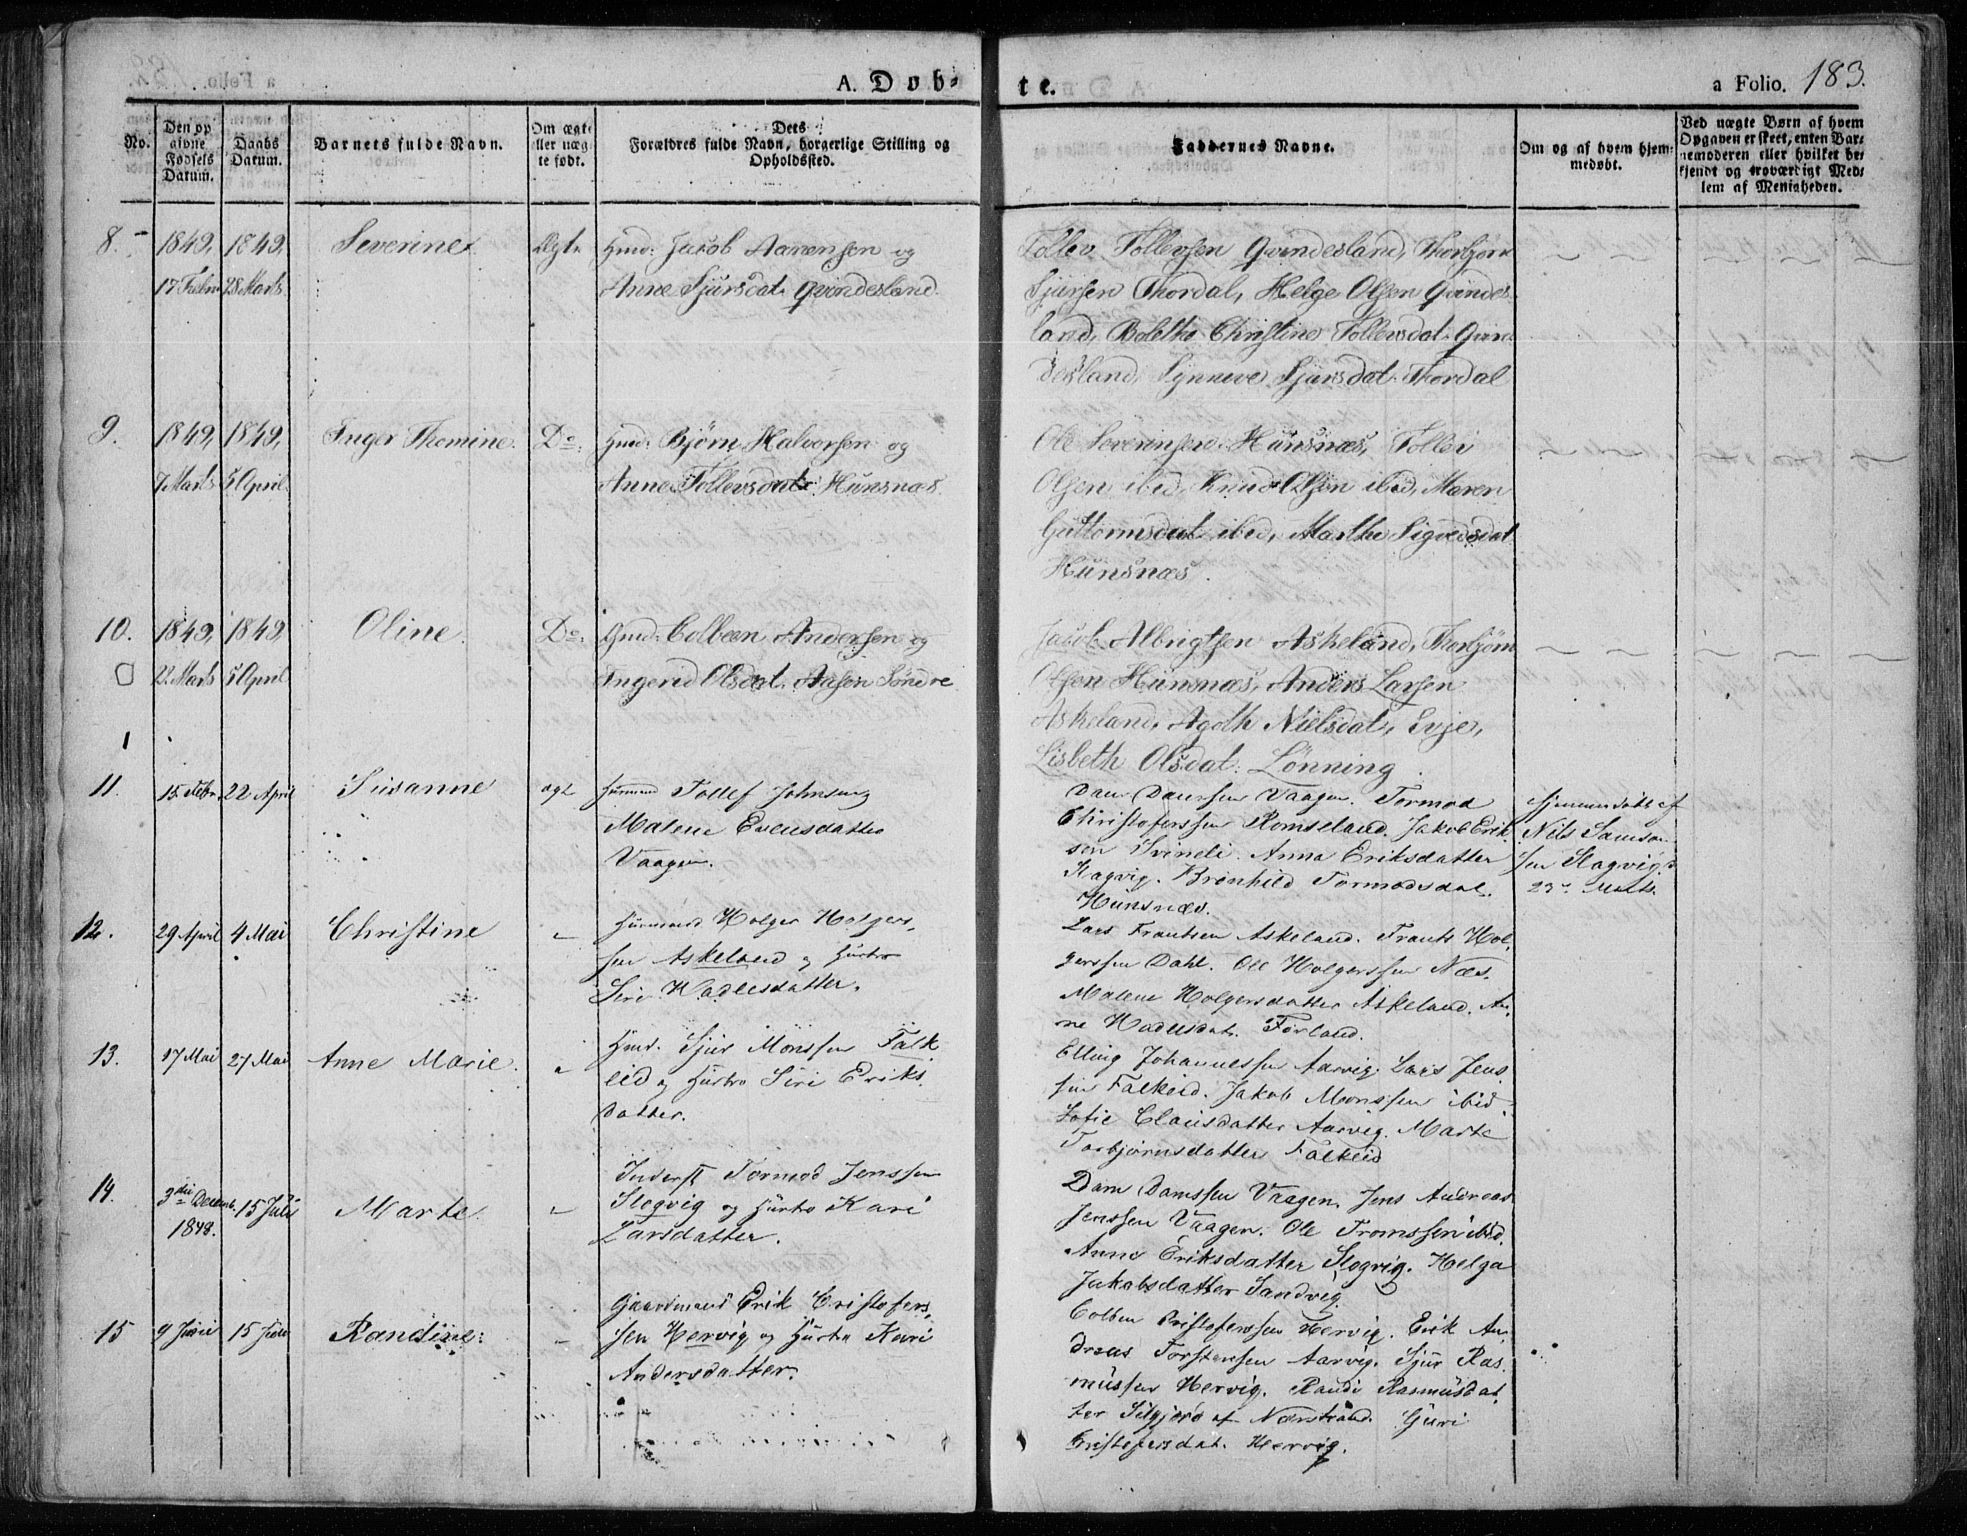 A. Døb-
te.
a Folio. 183.
No.
Den op
givne
Fødsels
Datum.
Daabs
Datum.
Barnets fulde Navn.
Om ægte
eller uæg-
te født.
Dets
Forældres fulde Navn, borgerlige Stilling og
Opholdssted.
Faddernes Navne.
Om og af hvem hjem-
medøbt.
Ved uægte Børn af hvem
Opgaven er skeet, enten Bar-
nemoderen eller hvilket be-
kjendt og troværdigt Med-
lem af Menigheden.
8. 1849, 1849, Severine Ægte Hmd: Jacob Aanensen og
17 Febr 28 Marts Anne Sjursdat: Qvindesland.
Tollev Tollevsen Qvindesland, Thorbjørn
Sjursen Thordal, Helge Olsen Qvindes-
land, Bolethe Christine Tollevsdat: Qvin
desland, Synneve Sjursdat: Thordal
9. 1849, 1849, Inger Thomine. Do: Hmd: Bjørn Halvorsen og
7 Marts 5 April Anne Tollevsdat: Hunsnæs.
Ole Severinsen Hunsnæs, Tollev
Olsen ibid, Knud Olsen ibid, Maren
Guttormsdat: ibid, Marthe Sigvedsdat
Hunsnæs.
10. 1849, 1849, Oline. Do: Hmd: Colbeen Andersen og
22 Marts 5 April Ingerid Olsdat: Aasen Søndre
Jacob Albrigtsen Askeland, Thorbjørn
Olsen Hunsnæs, Anders Larsen
Askeland, Agoth Nielsdat, Evje,
Lisbeth Olsdat: Lønning.
11. 15 Febr. 22 April Susanne ægt Huusmand Tollef Johnsen
Malene Evensdatter
Vaagen.
Dan Danssen Vaagen. Tormod
Christoferssen Romseland. Jakob Erik
sen Svindli. Anna Eriksdatter
Slagvig. Brønhild Tormodsdat.
Hunsnæs.
Hjemmedøbt af
Nils Samson
sen Slagvig d.
23 Marts.
12. 29 April 4 Mai Christine Huusmand Holger Holgers-
sen Askeland og Hustro
Siri Wadelsdatter.
Lars Frantsen Askeland. Frants Hol-
gerssen Dahl. Ole Holgerssen Næs.
Malene Holgersdatter Askeland. An-
ne Wadelsdat. Førland.
13. 17 Mai 27 Mai Anne Marie. Hmd. Sjur Monssen Falk
eid og Hustro Siri Eriks
datter.
Elling Johannessen Aarvig. Lars Jens
sen Falkeid. Jakob Monssen ibid.
Sofie Clausdatter Aarvig. Marte
Torbjørnsdatter Falkeid
14. 3die Decemb. 15 Juli Marte. Inderst Tormod Jenssen
1848. Slogvig og Hustro Kari
Larsdatter.
Dam Damssen Vaagen. Jens Andreas
Jenssen Vaagen. Ole Tromssen ibid.
Anne Eriksdatter Slogvig. Helga
Jakabsdatter Sandvig.
15 9 Juni 15 Juli Randine: Gaardmand Erik Cristofers-
sen Hervig og Hustro Kari
Andersdatter.
Colben Cristoferssen Hervig. Erik An-
dreas Torstensen Aarvig. Sjur Ras
mussen Hervig. Randi Rasmusdat
ter Silgjerd af Nærstrand. Guri
Cristofersdat. Hervig.